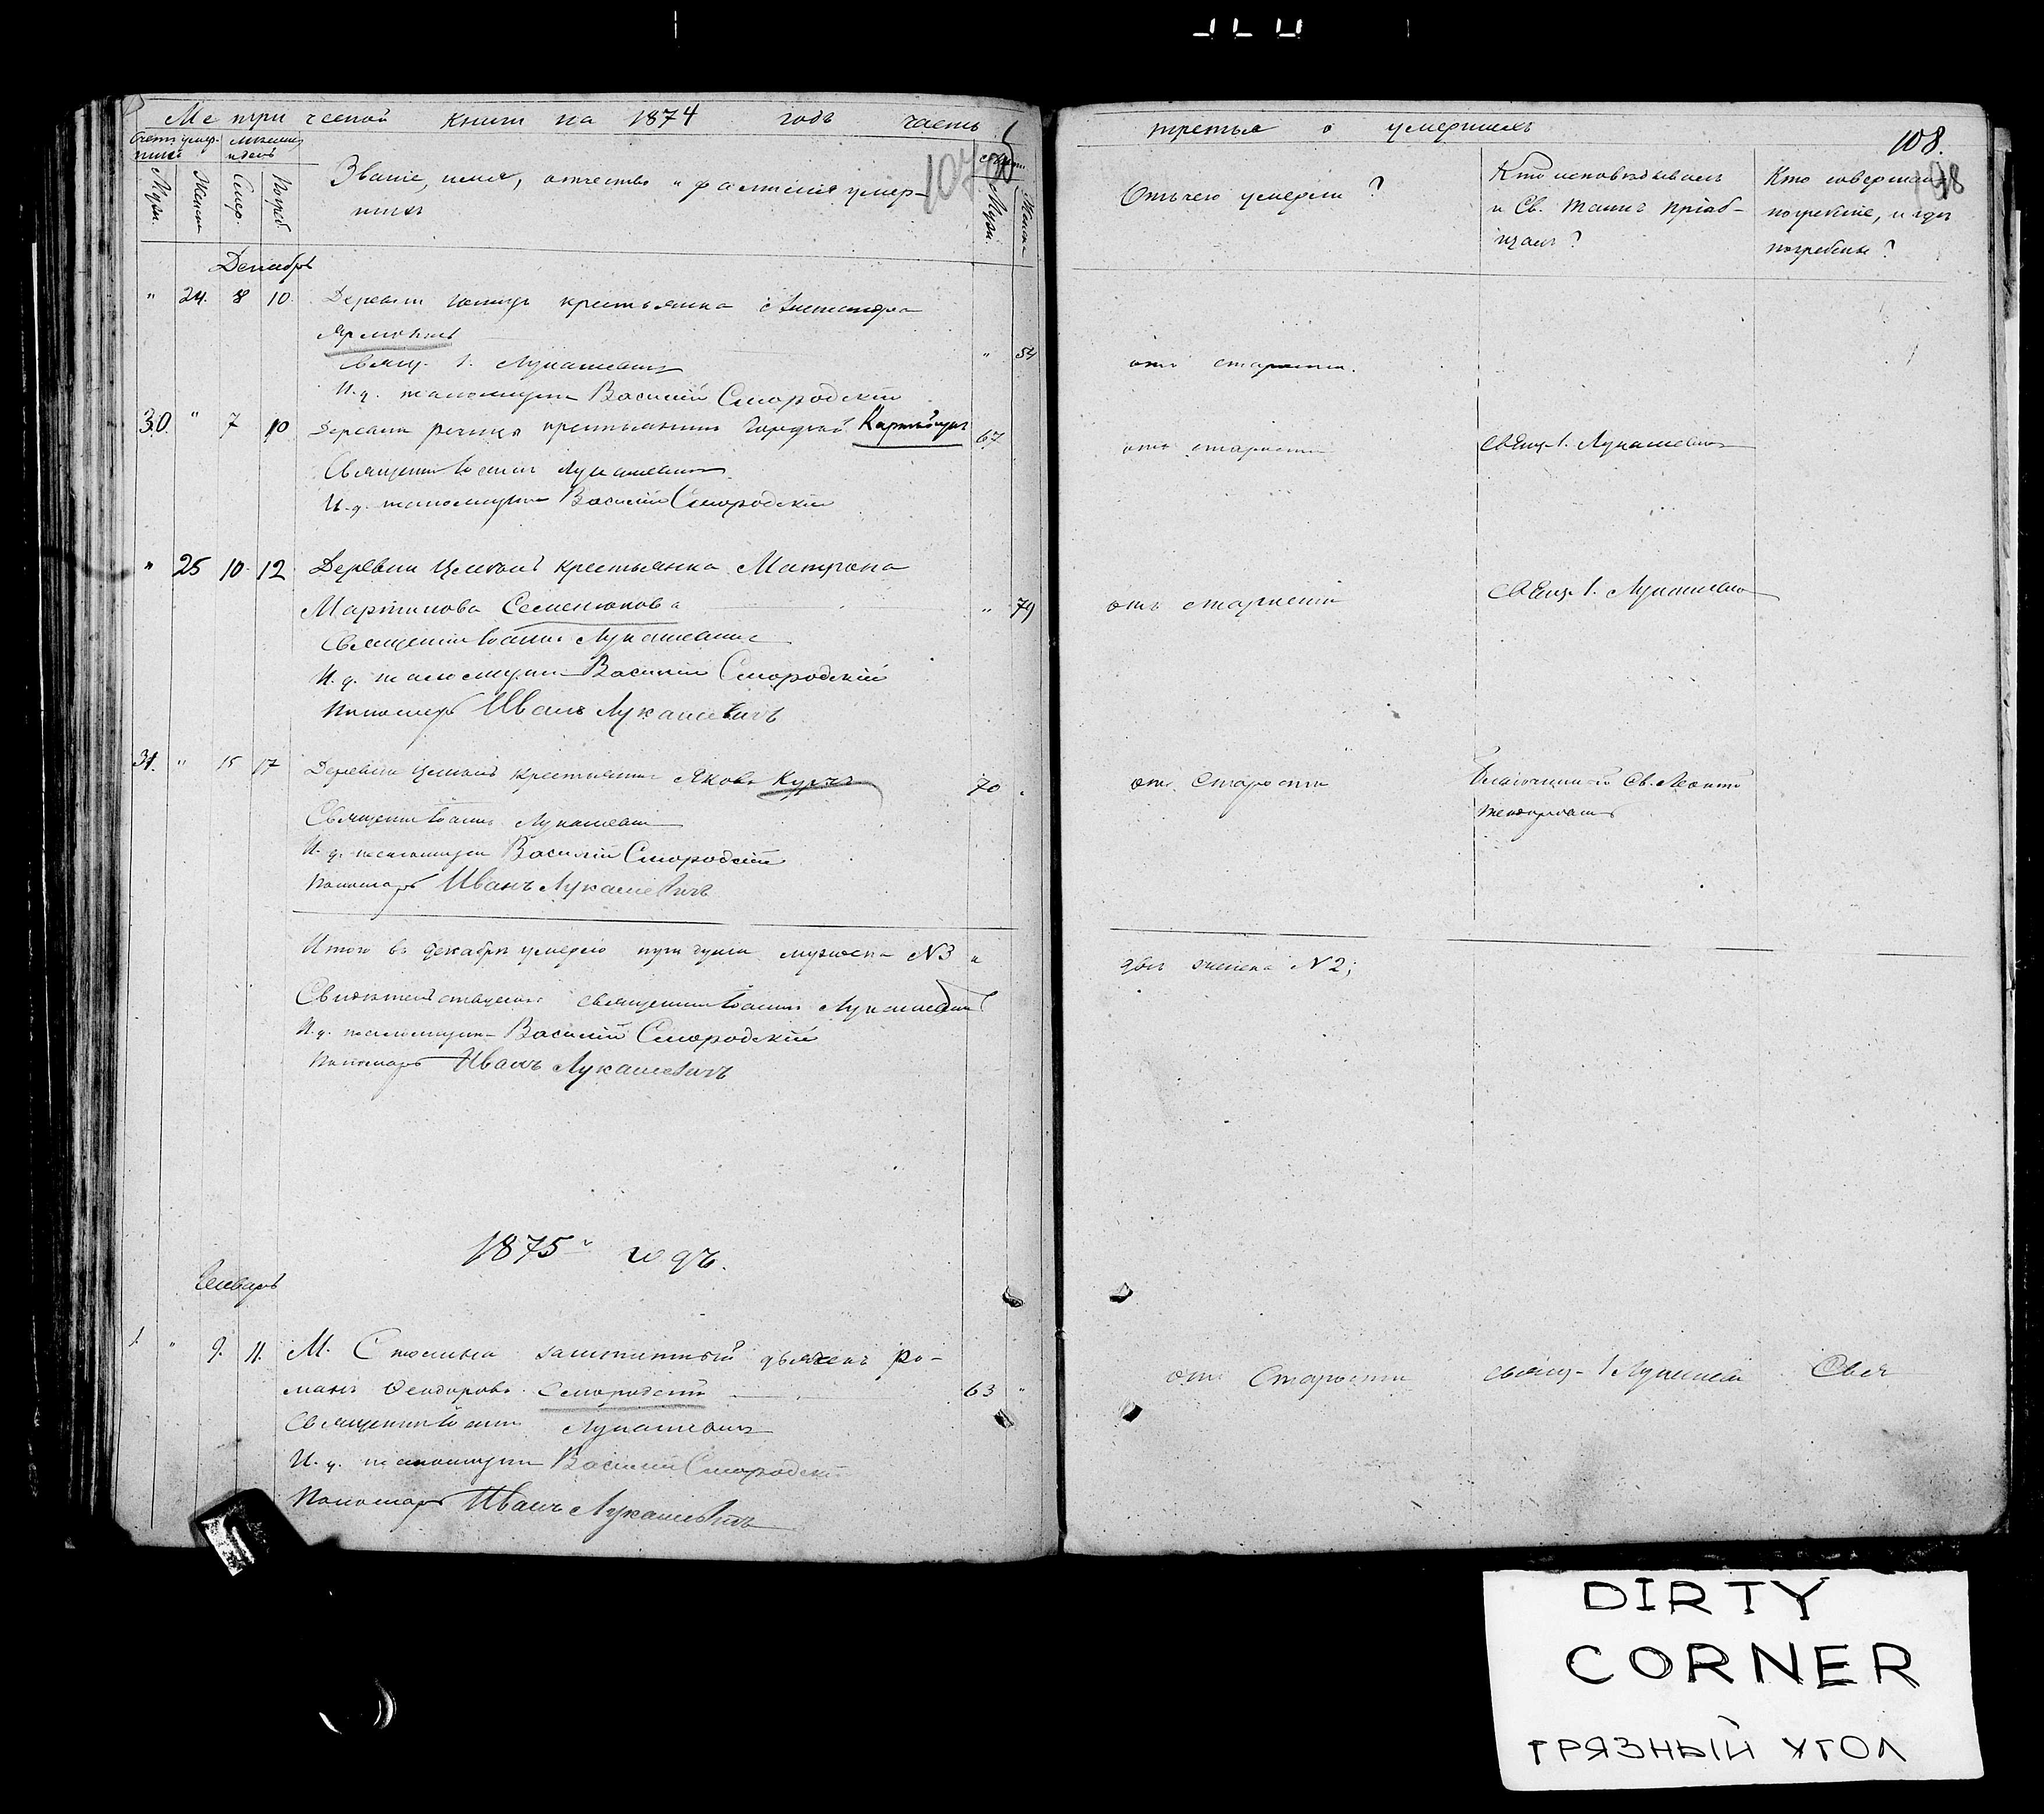 Метрической книги на 1874 годъ часть
Счетъ умер-
шихъ
Муж.
Женск.
Смер.
Погреб.
Званіе, имя, отчество и фамилія умер-
шихъ
107
Муж.
Женск.
Декабрь
" 24. 8 10. Деревни крестьянка Александра
" 54
Свящ. І. Лукашевичъ
И. д. псаломщика Василій Смородскій
30. " 7 10 Деревни Речица крестьянинъ 67
Священникъ Іоаннъ Лукашевичъ
И. д. псаломщика Василій Смородскій
" 25 10. 12. Деревни крестьянка Матрона
Мартинова Семенюкова " 79
Священникъ Іоаннъ Лукашевичъ
И. д. псаломщика Василій Смородскій
Пономарь Иванъ Лукашевичъ
31. " 15 17 Деревни крестьянинъ Яковъ Куричъ 70 "
Священникъ Іоаннъ Лукашевичъ
И. д. псаломщика Василій Смородскій
Пономарь Иванъ Лукашевичъ
Итого въ декабрѣ умерло душъ мужеска N 3 и
священникъ Іоаннъ Лукашевичъ
И. д. псаломщика Василій Смородскій
Пономарь Иванъ Лукашевичъ
1875й годъ.
Январь
1. " 9. 11. М. Столина заштатный дьячекъ Ро-
манъ Ѳеодоровъ Смородскій 63 "
Священникъ Іоаннъ Лукашевичъ
И. д. псаломщика Василій Смородскій
Пономарь Иванъ Лукашевичъ
третья о умершихъ
108.
98
Отъ чего умерли?
Кто исповѣдывалъ
и Св. Таинъ пріоб-
щалъ?
Кто совершалъ
погребеніе, и гдѣ
погребены?
отъ старости.
отъ старости Свящ. І. Лукашевичъ
отъ старости Свящ. І. Лукашевичъ
отъ старости Св.
двѣ женска N 2;
отъ Старости свящ. І Лукашевичъ
DIRTY
CORNER
ГРЯЗНЫЙ УГОЛ